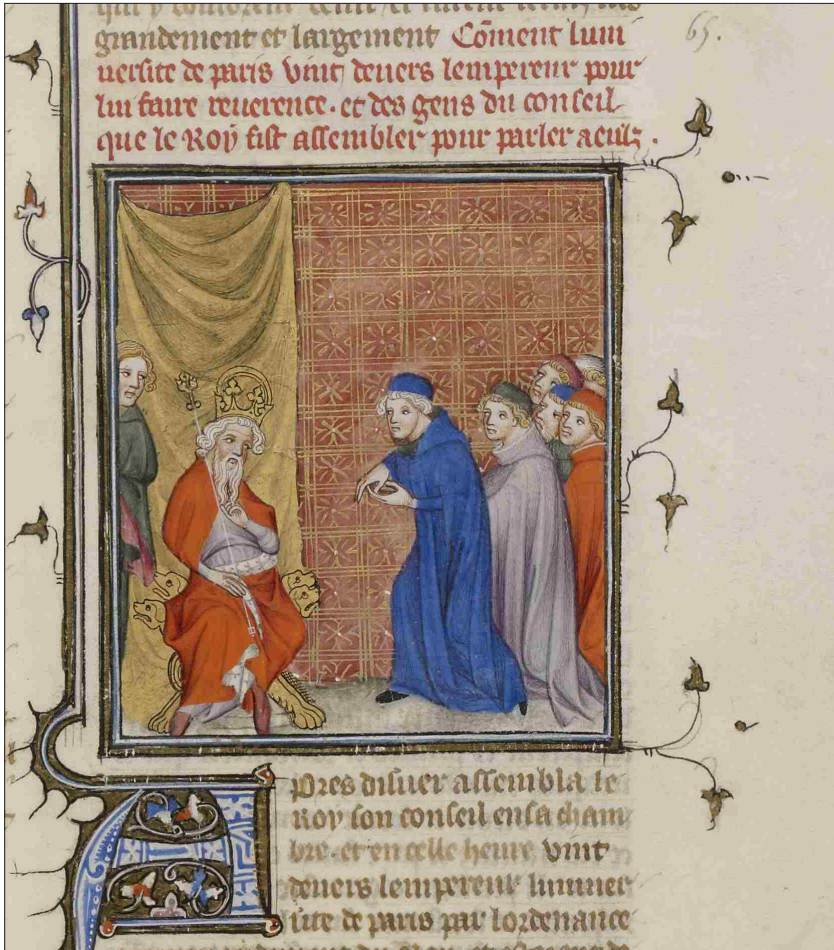 grandement et largement Cōment luni
uersite de paris vint deuers lempereur pour
lui faire reuerence. et des gens du conseil
que le Roy fist assembler pour parler a eulz.
65.
Apres disner assembla le
Roy son conseil en sa cham
bre. et en celle heure vint
deuers lempereur luniuer
site de paris par lordenance